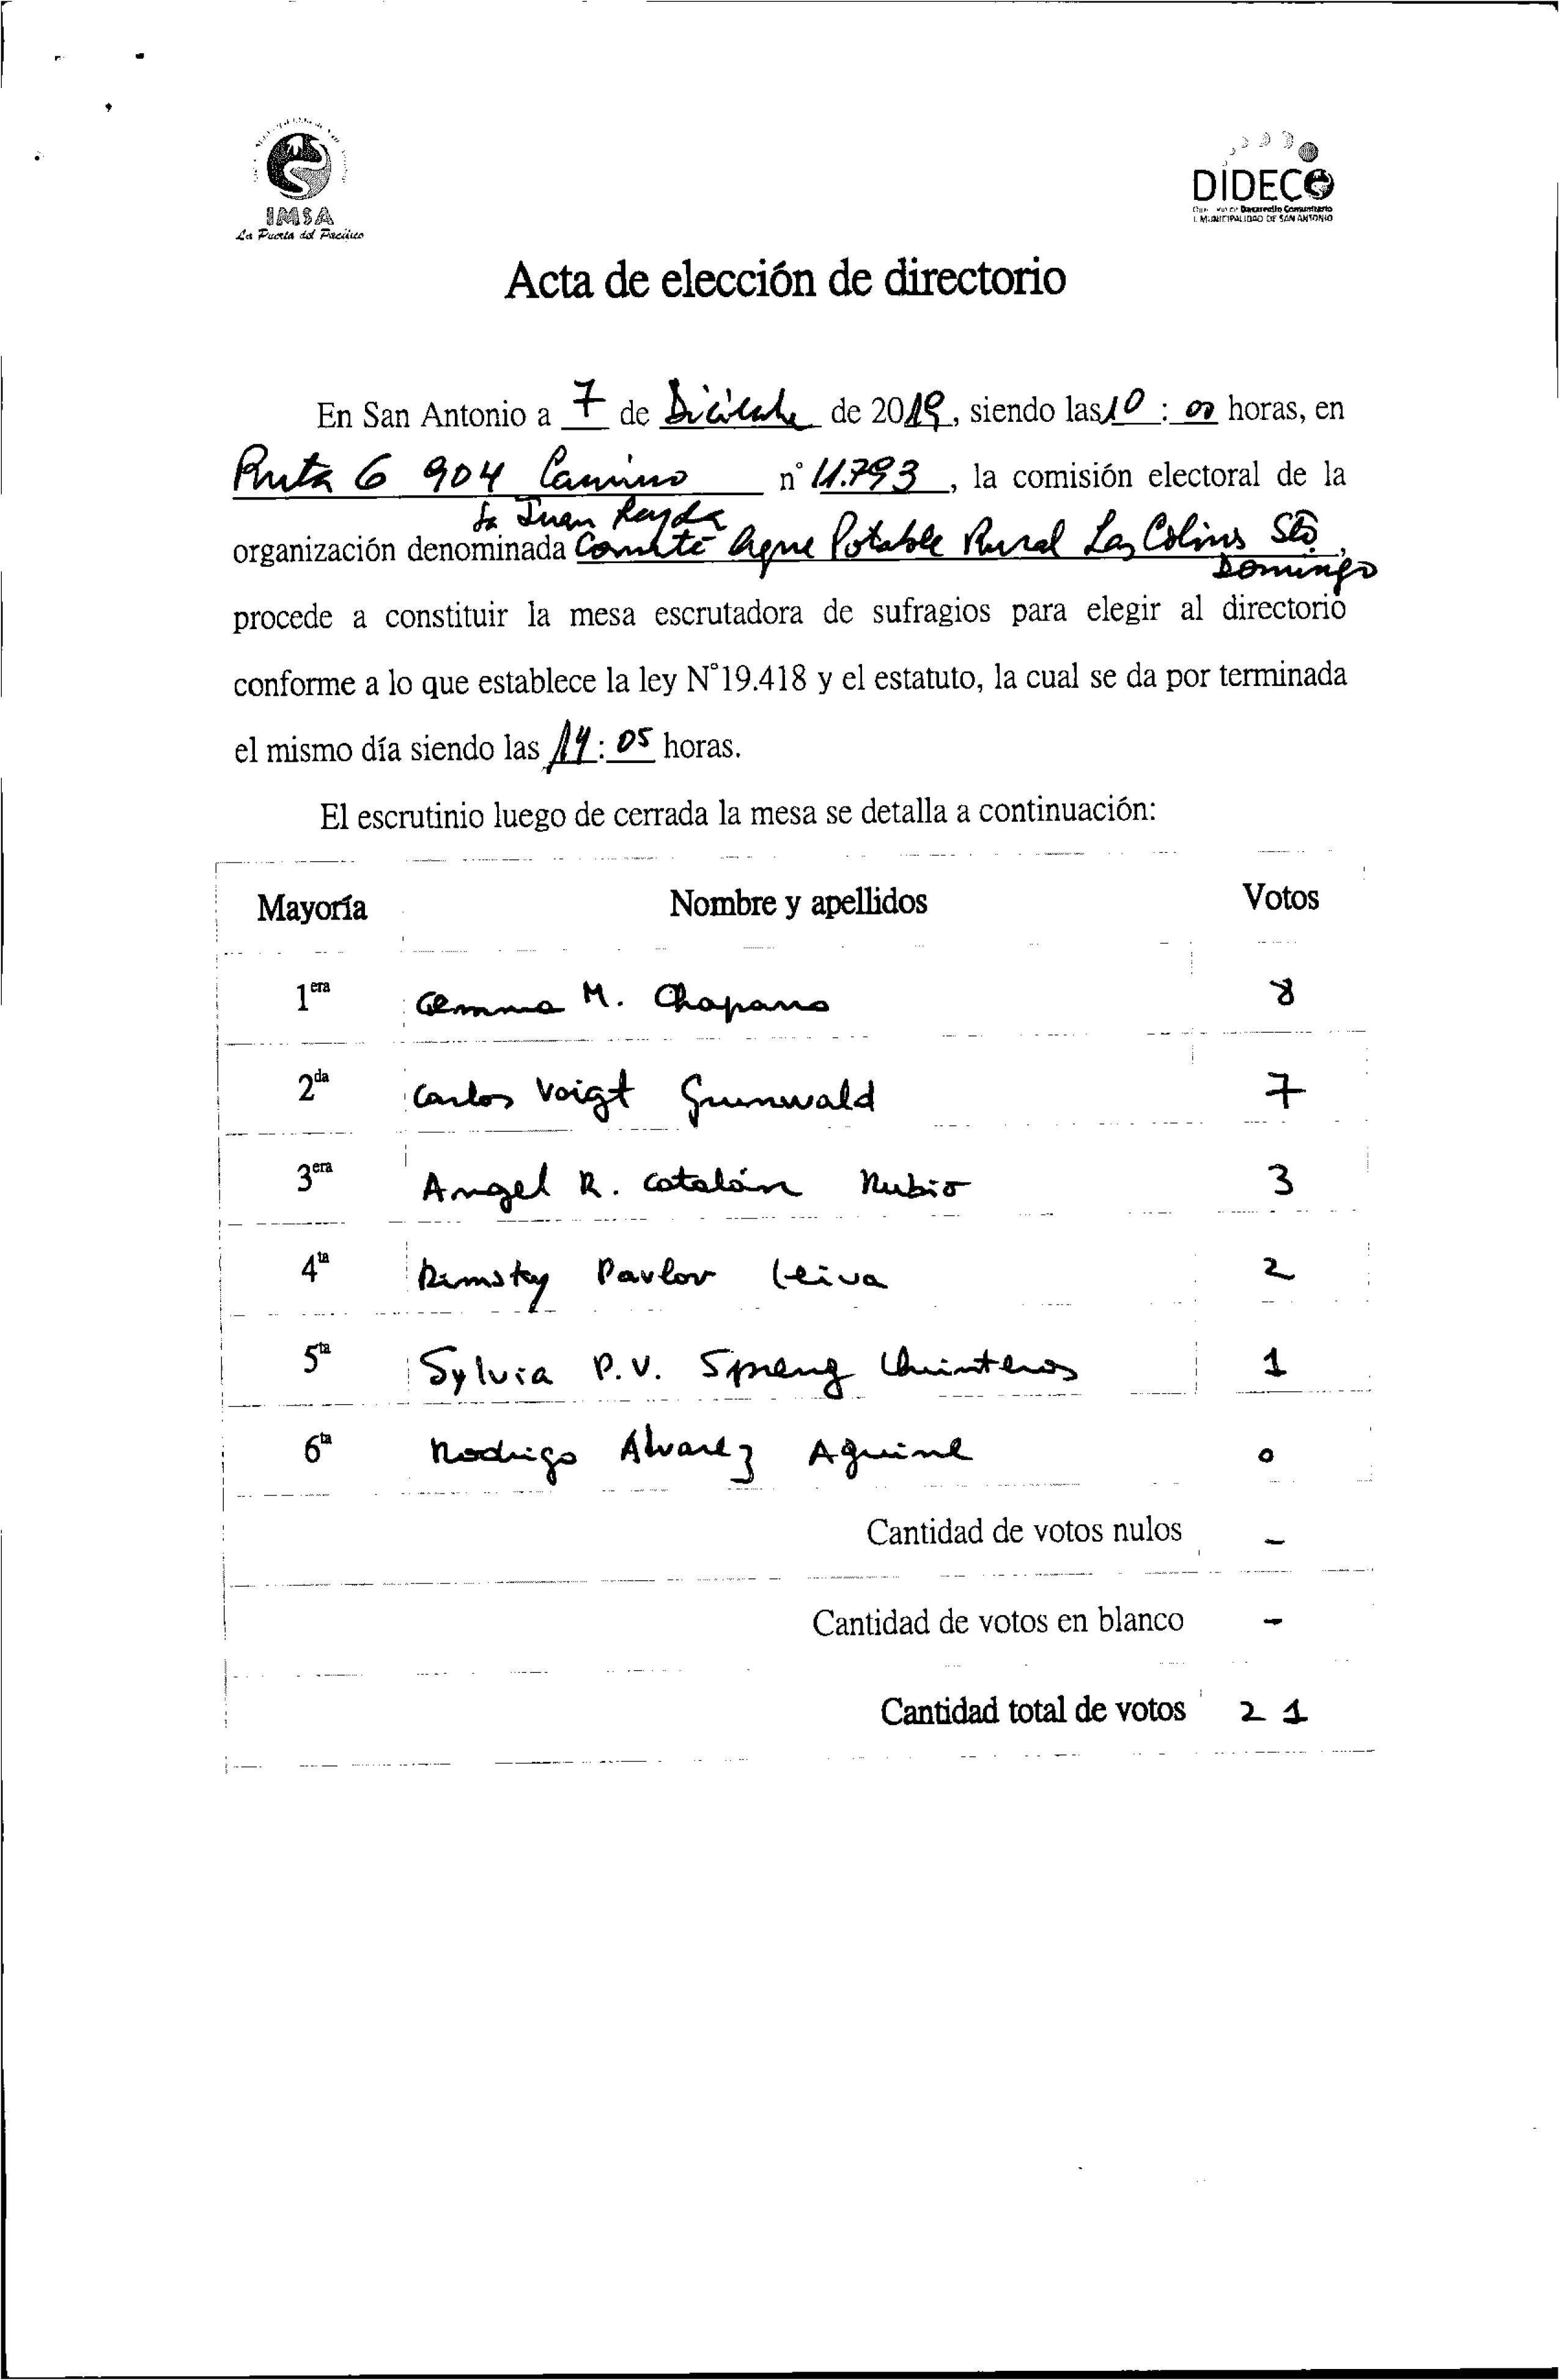 IMSA
La Puerta del Pacífico
DIDECO
Desarrollo Comunitario
I. MUNICIPALIDAD DE SAN ANTONIO
Acta de elección de directorio
En San Antonio a 7 de Diciembre de 2019, siendo las 10 : 00 horas, en
Ruta G 904 Camino n° 11.793, la comisión electoral de la
Sn Juan
organización denominada Comité Agua Potable Rural Las Colinas Sto
Domingo
procede a constituir la mesa escrutadora de sufragios para elegir al directorio
conforme a lo que establece la ley N°19.418 y el estatuto, la cual se da por terminada
el mismo día siendo las 14 : 05 horas.
El escrutinio luego de cerrada la mesa se detalla a continuación:
Mayoría Nombre y apellidos Votos
1era Gemma M. 8
2da Carlos Voigt Grunwald 7
3era Angel R. Catalán Rubio 3
4ta Rimsky Pavlov Leiva 2
5ta Sylvia P.V. Spreng Quinteros 1
6ta Rodrigo Alvarez Aguirre 0
Cantidad de votos nulos –
Cantidad de votos en blanco -
Cantidad total de votos 21